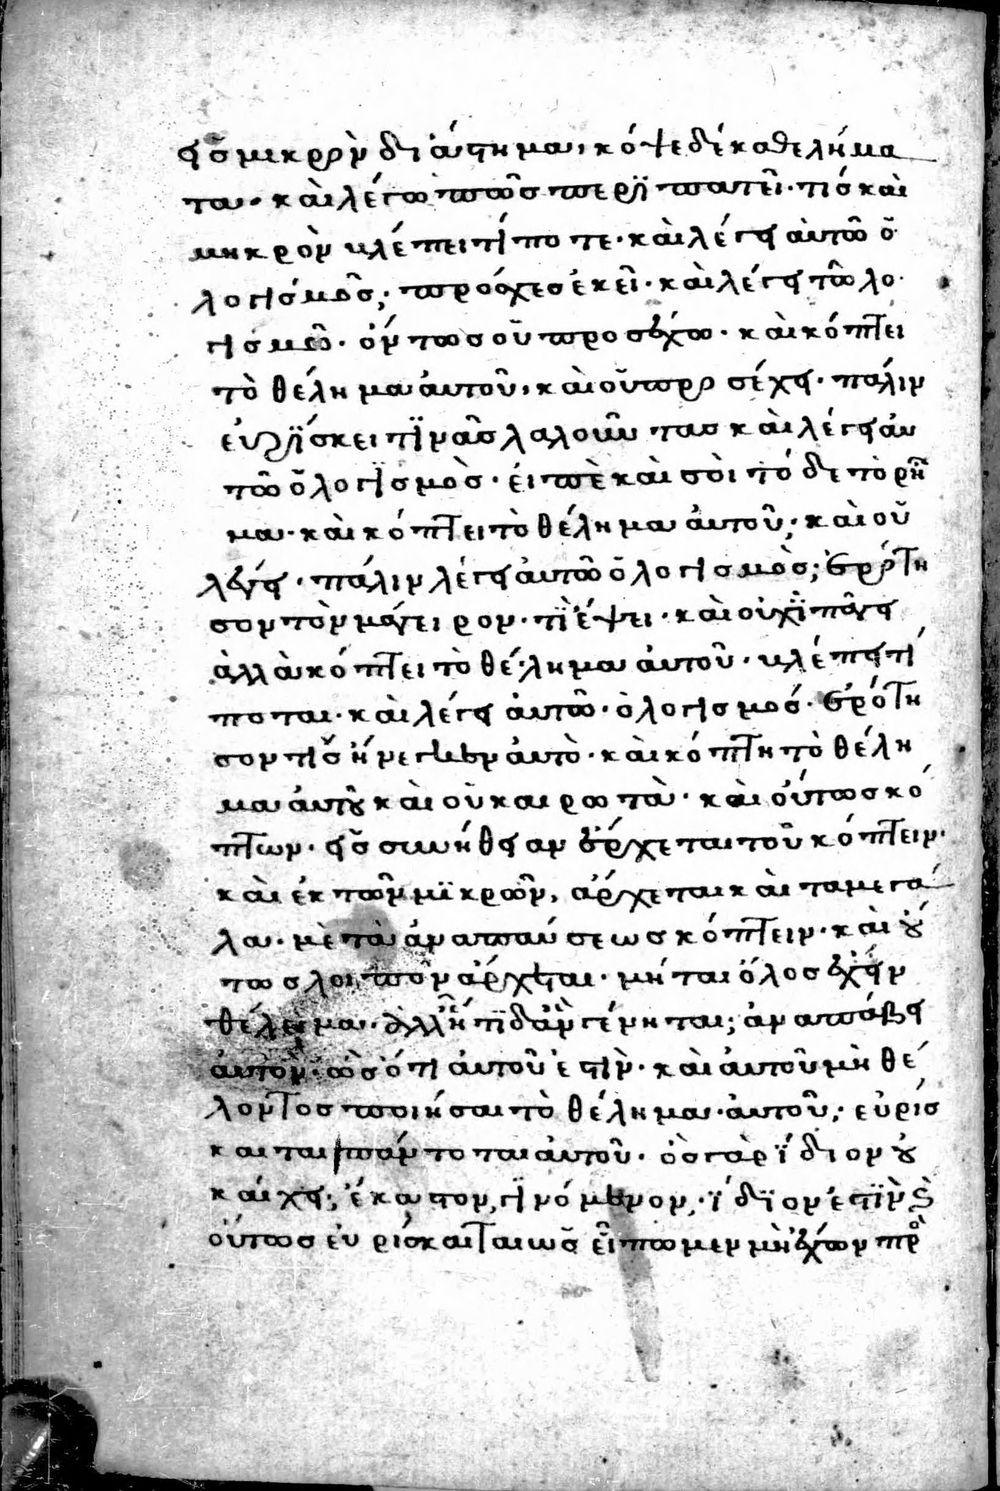 εἰς μικρὸν διάστημα, κόψε δέκα θελήμα
τα· καὶ λέγω πῶς περϊπατεῖ· τίσ καὶ
μηκρὸν κλέπει τί πο τε· καὶ λέγει ἀυτῶ ὅ
λογισμὸς; πρόσχεσ ἐκεῖ· καὶ λέγει τῶ λο
γισμῶ· ὄντωσ οὔ προσέχω· καὶ κόπτει
τὸ θέλημα ἀυτοῦ, καὶ οὔ προσέχει· πάλιν
ἐυρϊσκει τϊνὰσ λαλοῦντασ καὶ λέγει ἀυ
τῶ ὅ λογισμὸσ· ἐιπὲ καὶ σὸι τόδε τὸ ρῆ
μα· καὶ κόπτει τὸ θέλημα ἀυτοῦ; καὶ οὔ
λέγει· πάλιν λέγει ἀυτῶ ὅ λογισμὸς; ἐρότη
σον τὸν μάγειρον· τϊ ἕψει· καὶ οὐχϊ ὑπάγει
ἀλλὰ κόπτει τὸ θέλημα ἀυτοῦ· κλέπει τί
ποται· καὶ λέγει ἀυτῶ· ὁ λογισμόσ· ἐρότη
σον τίσ ἤνεγκεν ἀυτὸ· καὶ κόπτη τὸ θέλη
μα ἀυτοῦ καὶ οὐκ αιρωτὰ· καὶ οὕτωσ κό
πτων· εἰς συνήθειαν ἔρχεται τοῦ κόπτειν·
καὶ ἐκ τῶν μϊκρῶν, ἄρχεται καὶ τα μεγά
λα· μὲτὰ ἀναπαύσεωσ κόπτειν· καὶ οὕ
τωσ λοιπὸν ἄρχεται· μήται ὅλοσ ἔχειν
θέλειμα· ἀλλ' ἤ τϊ δἂν γένηται; ἀναπάβει
ἀυτὸν· ὡσ ὅτι ἀυτοῦ ἐστὶν· καὶ ἀυτοῦ μὴ θέ
λοντοσ ποιήσαι τὸ θέλημα ἀυτοῦ; εὑρίσ
καιται πάντοται ἀυτοῦ· ὁσ γὰρ ϊδιον οὐ
καίχει; ἕκαστον γϊνόμενον· ϊδϊον ἐστϊν ϛ
οὕτωσ ἐυρίσκαιται ὡς εἴπωμεν μὴ ἔχων πρ